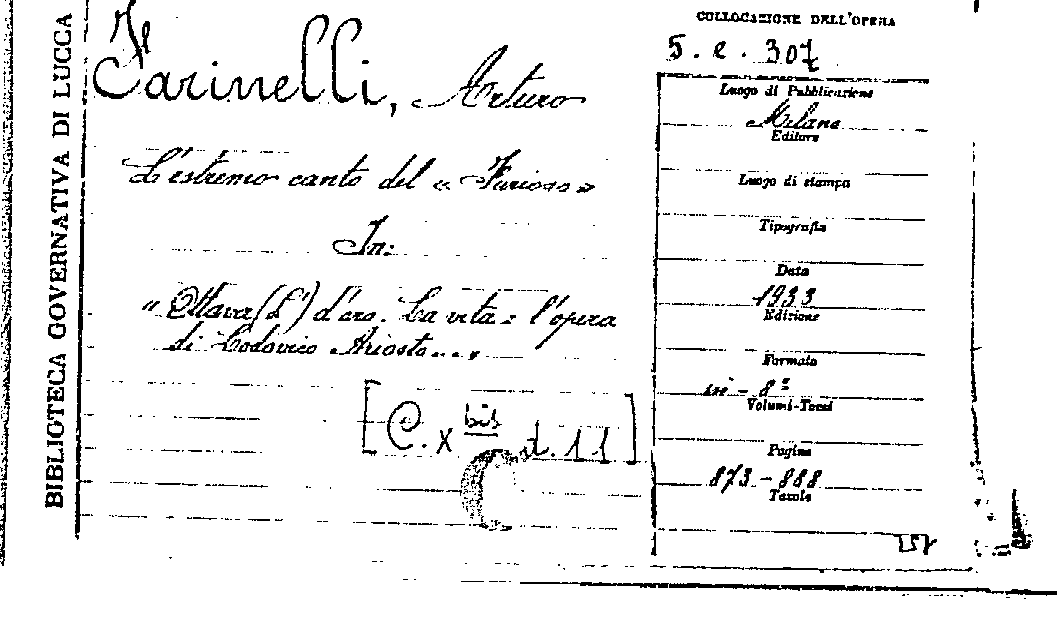 BIBLIOTECA GOVERNATIVA DI LUCCA
Farinelli, Arturo
L'estremo canto del « Furioso »
In:
"Ottava (L') d'oro. La vita e l'opera
di Lodovico Ariosto...,
[C. x bis st. 11]
COLLOCAZIONE DELL'OPERA
5. e. 307
Luogo di Pubblicazione
Milano
Editore
Luogo di stampa
Tipografia
Data
1933
Edizione
Formato
in - 8º
Volumi-Tomi
Pagine
873 - 888
Tavole